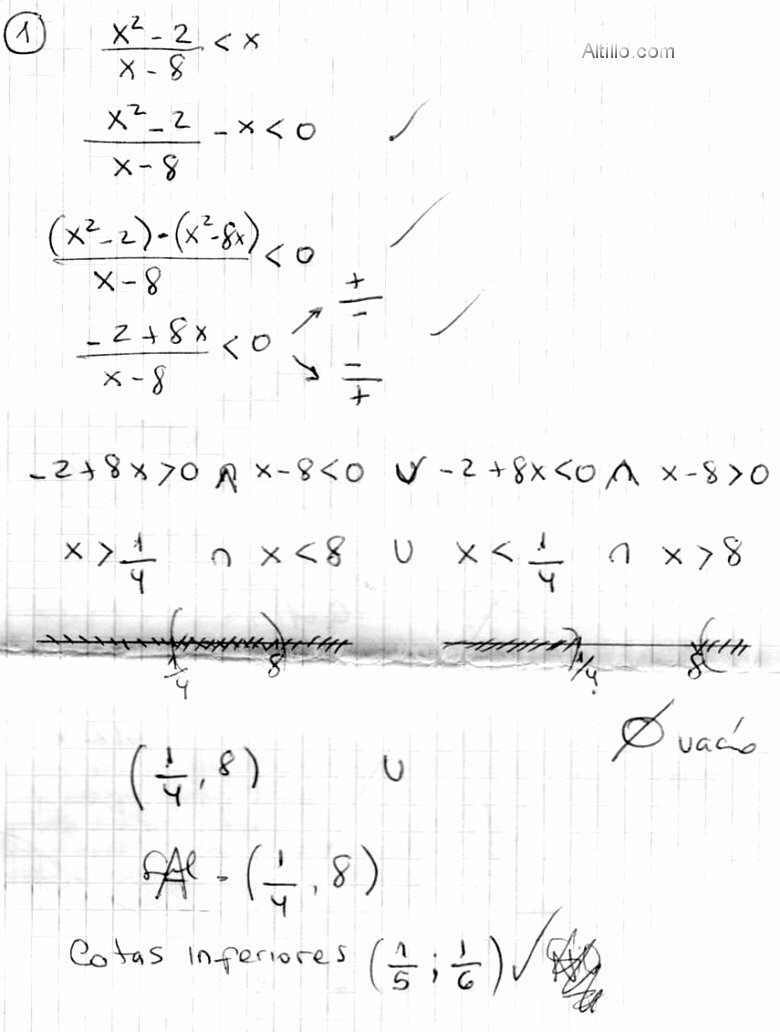 1 (x² - 2)/(x - 8) < x
Altillo.com
(x² - 2)/(x - 8) - x < 0 ✓
((x² - 2) - (x² - 8x))/(x - 8) < 0 ✓
(-2 + 8x)/(x - 8) < 0 ↗ +/- ↘ -/+ ✓
-2 + 8x > 0 ∧ x - 8 < 0 ∨ -2 + 8x < 0 ∧ x - 8 > 0
x > 1/4 ∩ x < 8 ∪ x < 1/4 ∩ x > 8
( 1/4 ) 8 ) 1/4 ( 8
(1/4, 8) ∪ Ø vacío
= (1/4, 8)
Cotas inferiores (1/5 ; 1/6) ✓